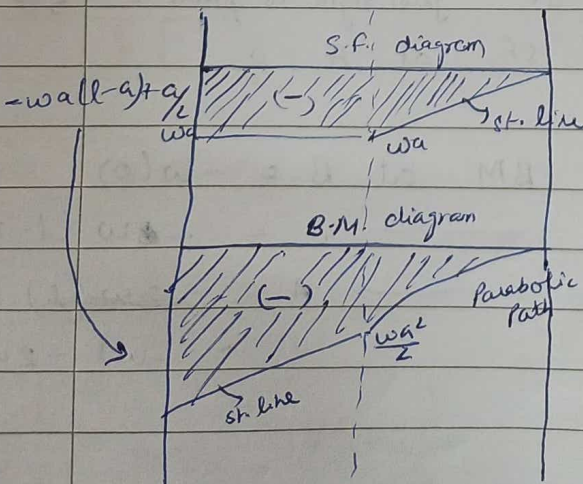 S.F. diagram
-wa(l-a)+a/2
(-)
wa
wa
st. line
B.M. diagram
(-)
Parabolic
Path
wa²/2
st. line